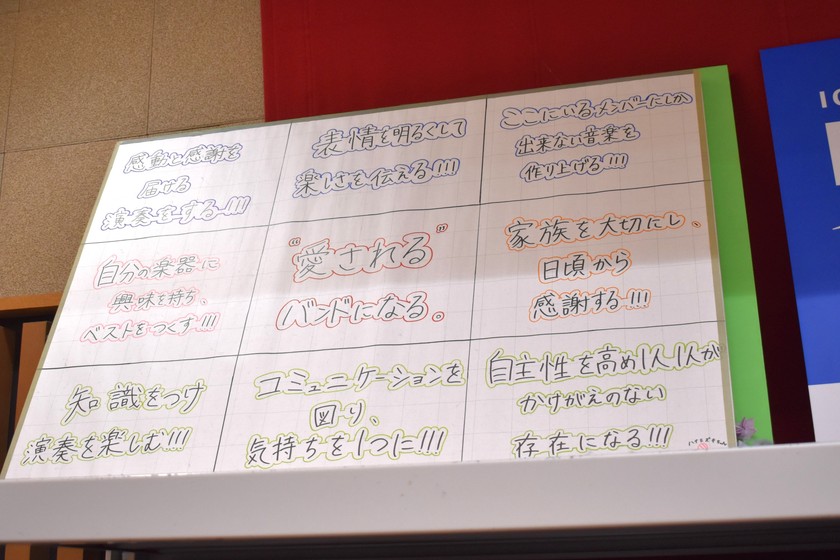 感動と感謝を
届ける
演奏をする!!!
表情を明るくして
楽しさを伝える!!!
ここにいるメンバーにしか
出来ない音楽を
作り上げる!!!
自分の楽器に
興味を持ち、
ベストをつくす!!!
"愛される"
バンドになる。
家族を大切にし、
日頃から
感謝する!!!
知識をつけ
演奏を楽しむ!!!
コミュニケーションを
図り、
気持ちを1つに!!!
自主性を高め1人1人が
かけがえのない
存在になる!!!